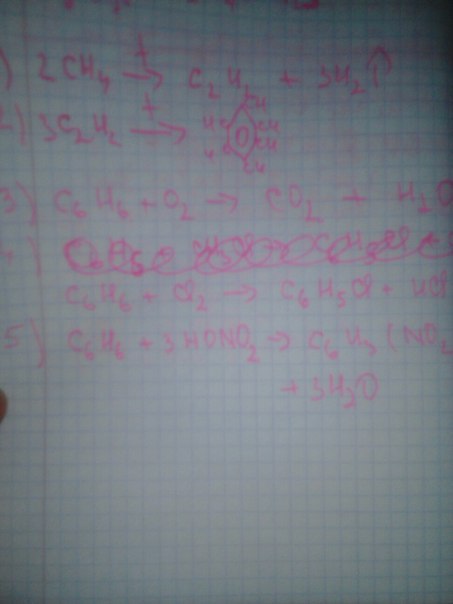 ) 2CH4 t→ C2H2 + 3H2↑
2) 3C2H2 t→
CH
HC CH
HC CH
CH
3) C6H6 + O2 → CO2 + H2O
C6H6 + Cl2 → C6H5Cl + HCl
5) C6H6 + 3HONO2 → C6H3(NO2
+ 3H2O